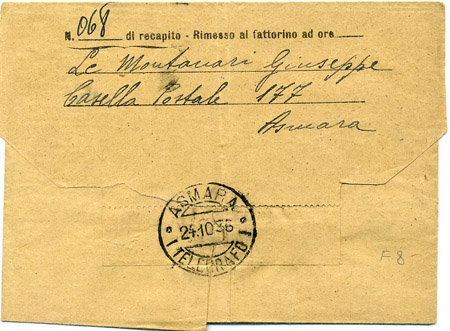 N. 068 di recapito - Rimesso al fattorino ad ore
Le Montanari Giuseppe
Casella Postale 177
Asmara
ASMARA
24.10.36
TELEGRAFO
F 8-